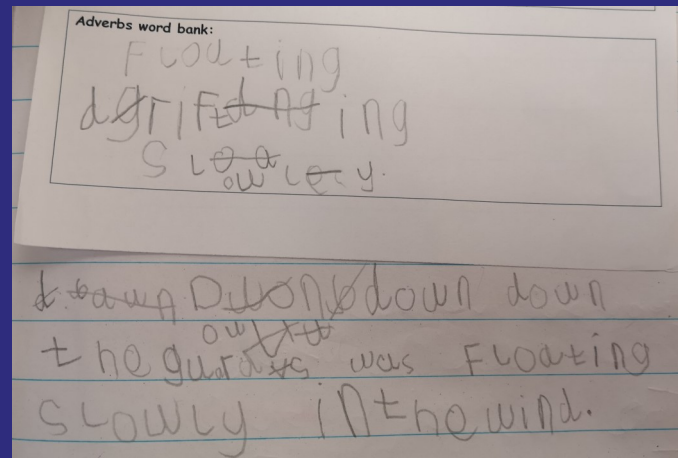 Adverbs word bank:
Floating
drifting
Slowly.
down down
the was Floating
slowly in the wind.